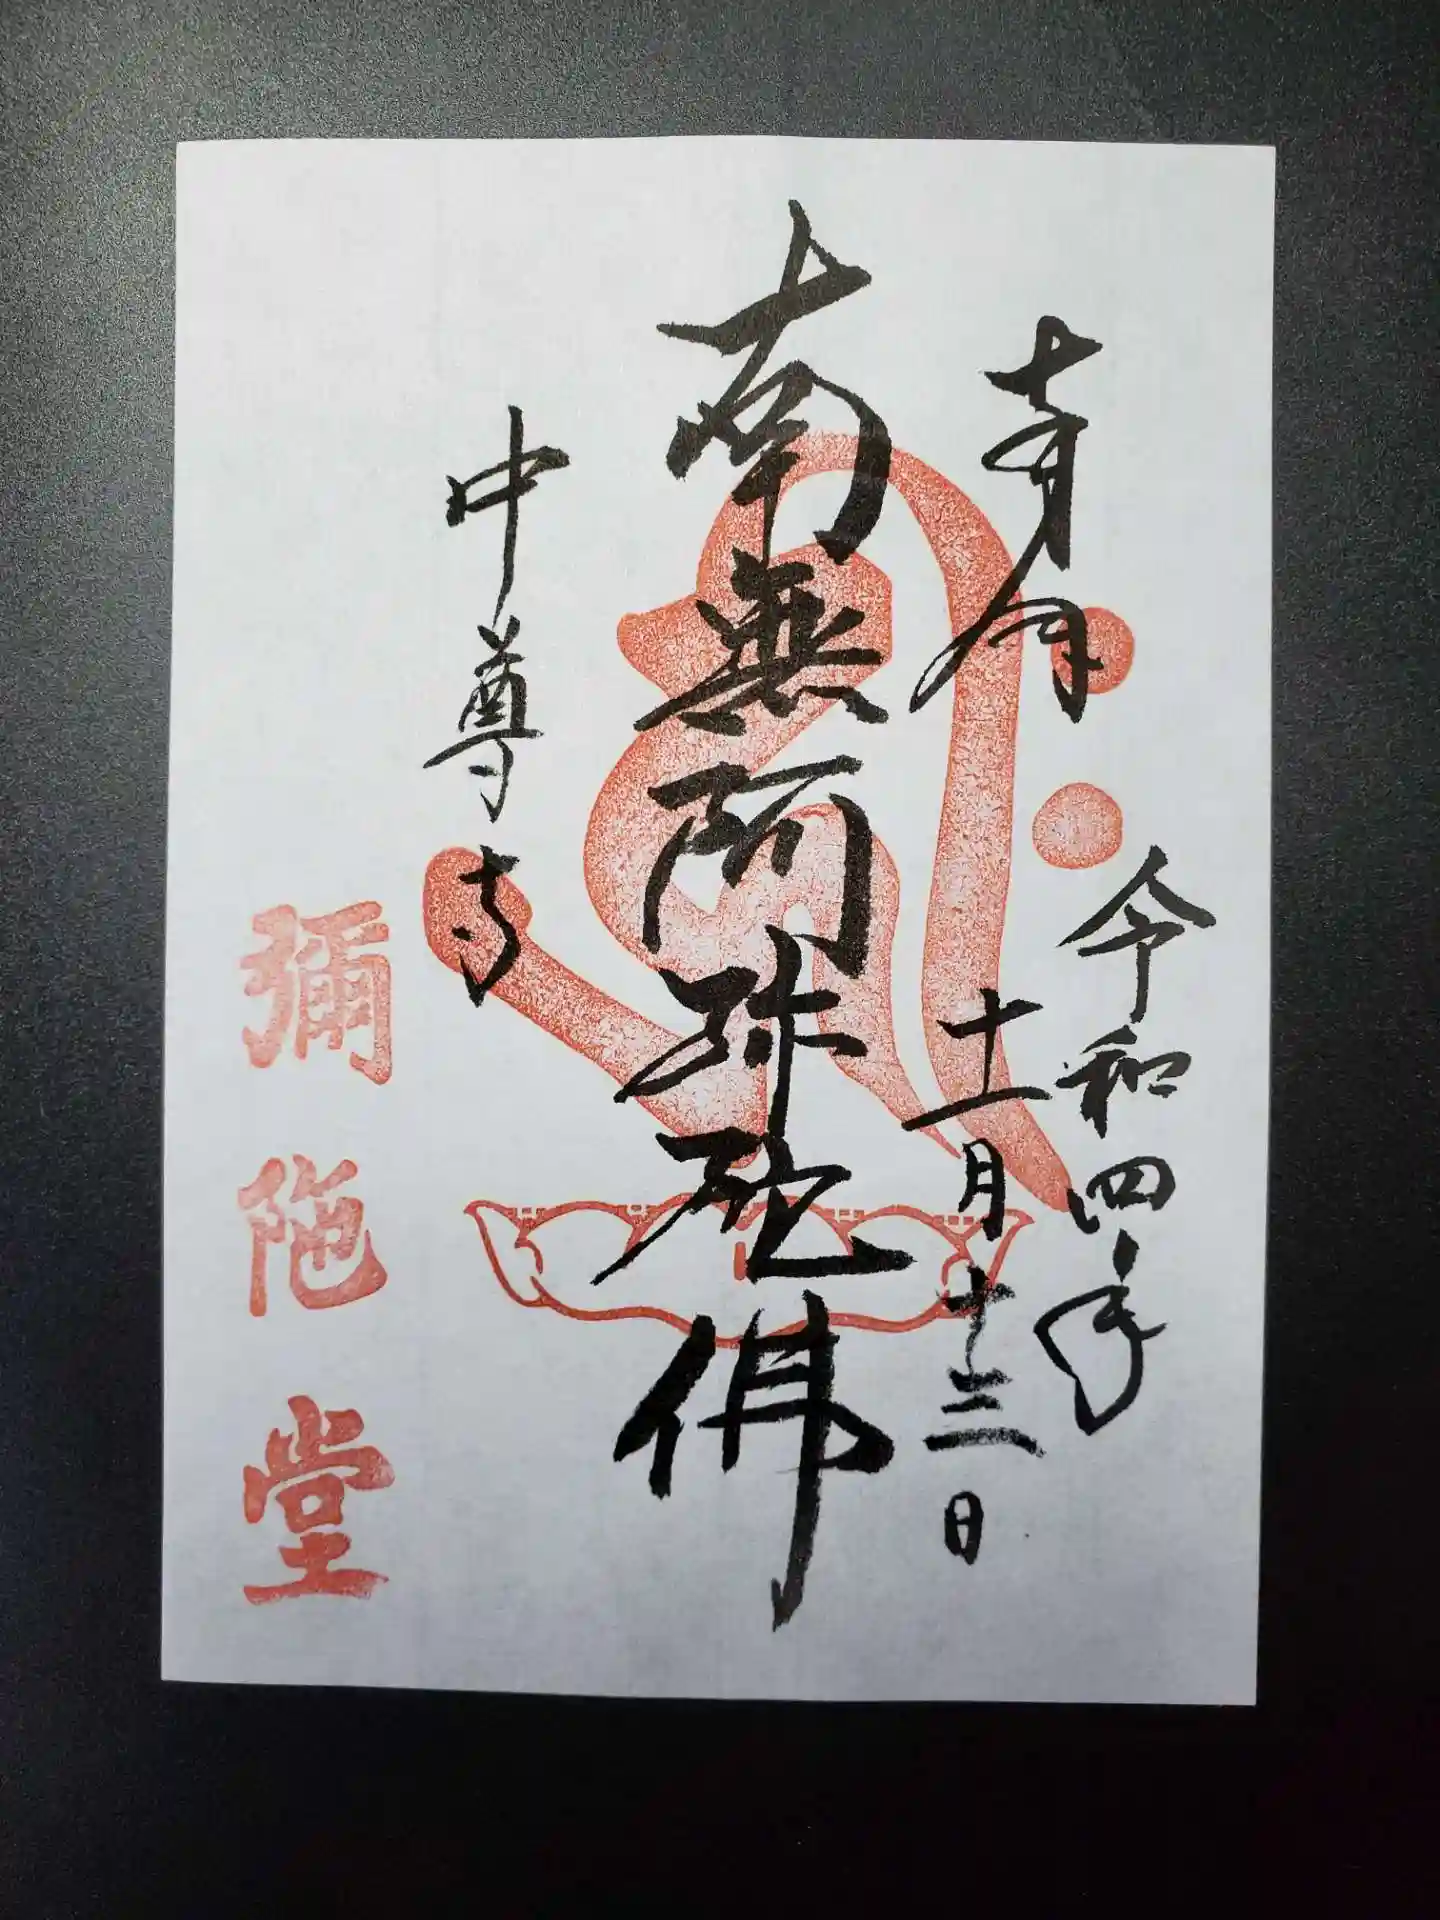 令和四年
十一月十三日
南無阿弥陀佛
中尊寺
彌陁堂